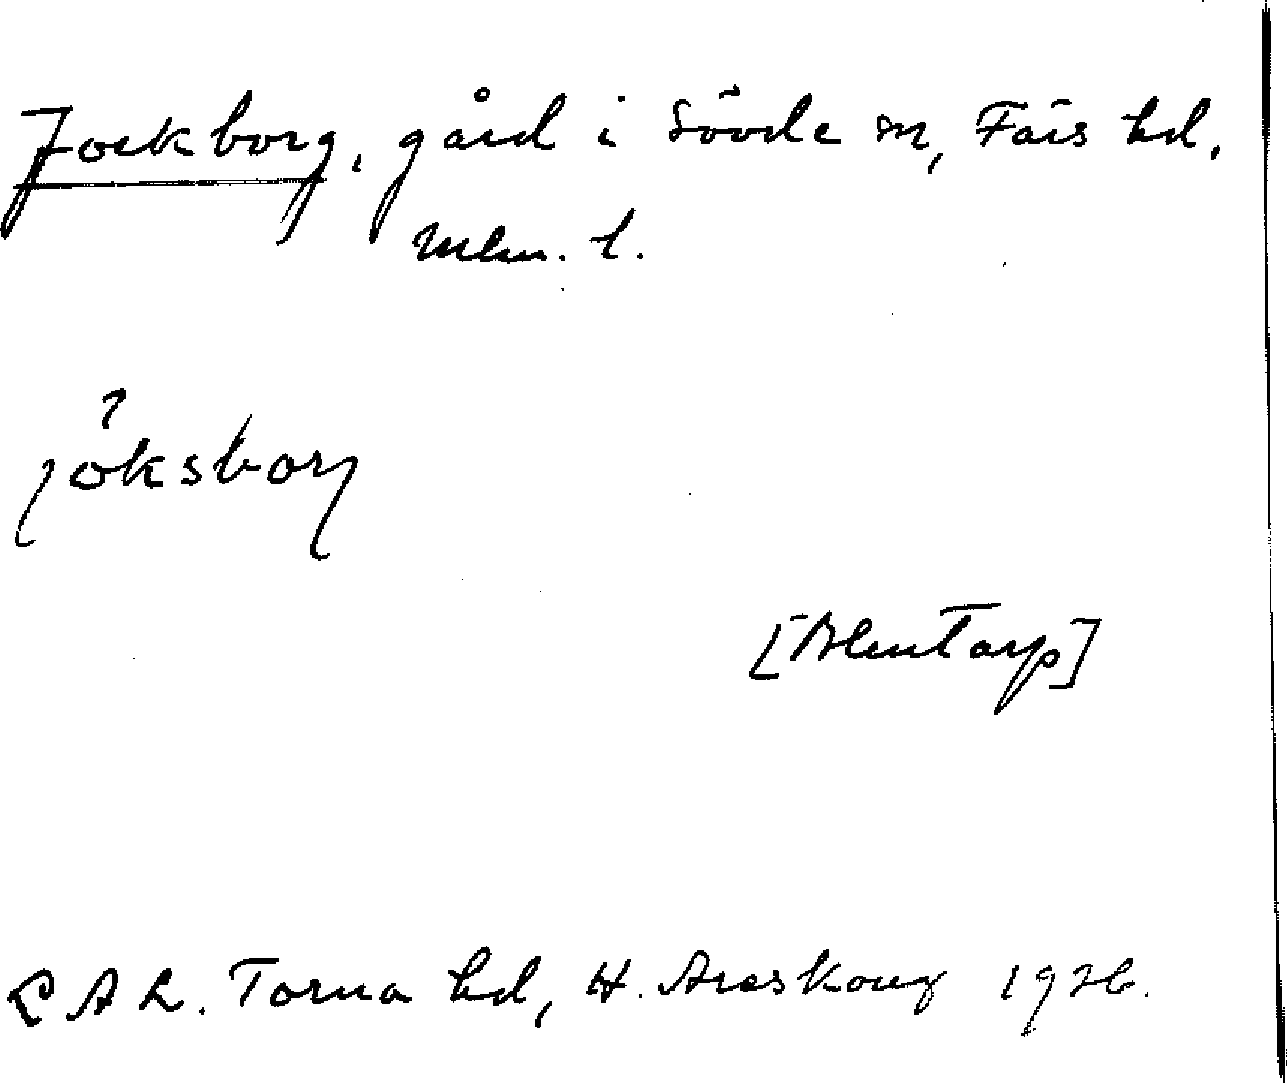 Jockborg, gård i Sövde sn, Färs hd,
Mlm. l.
jöksborj
[Alentarp]
L A L. Torna hd, H. Areskoug 1926.